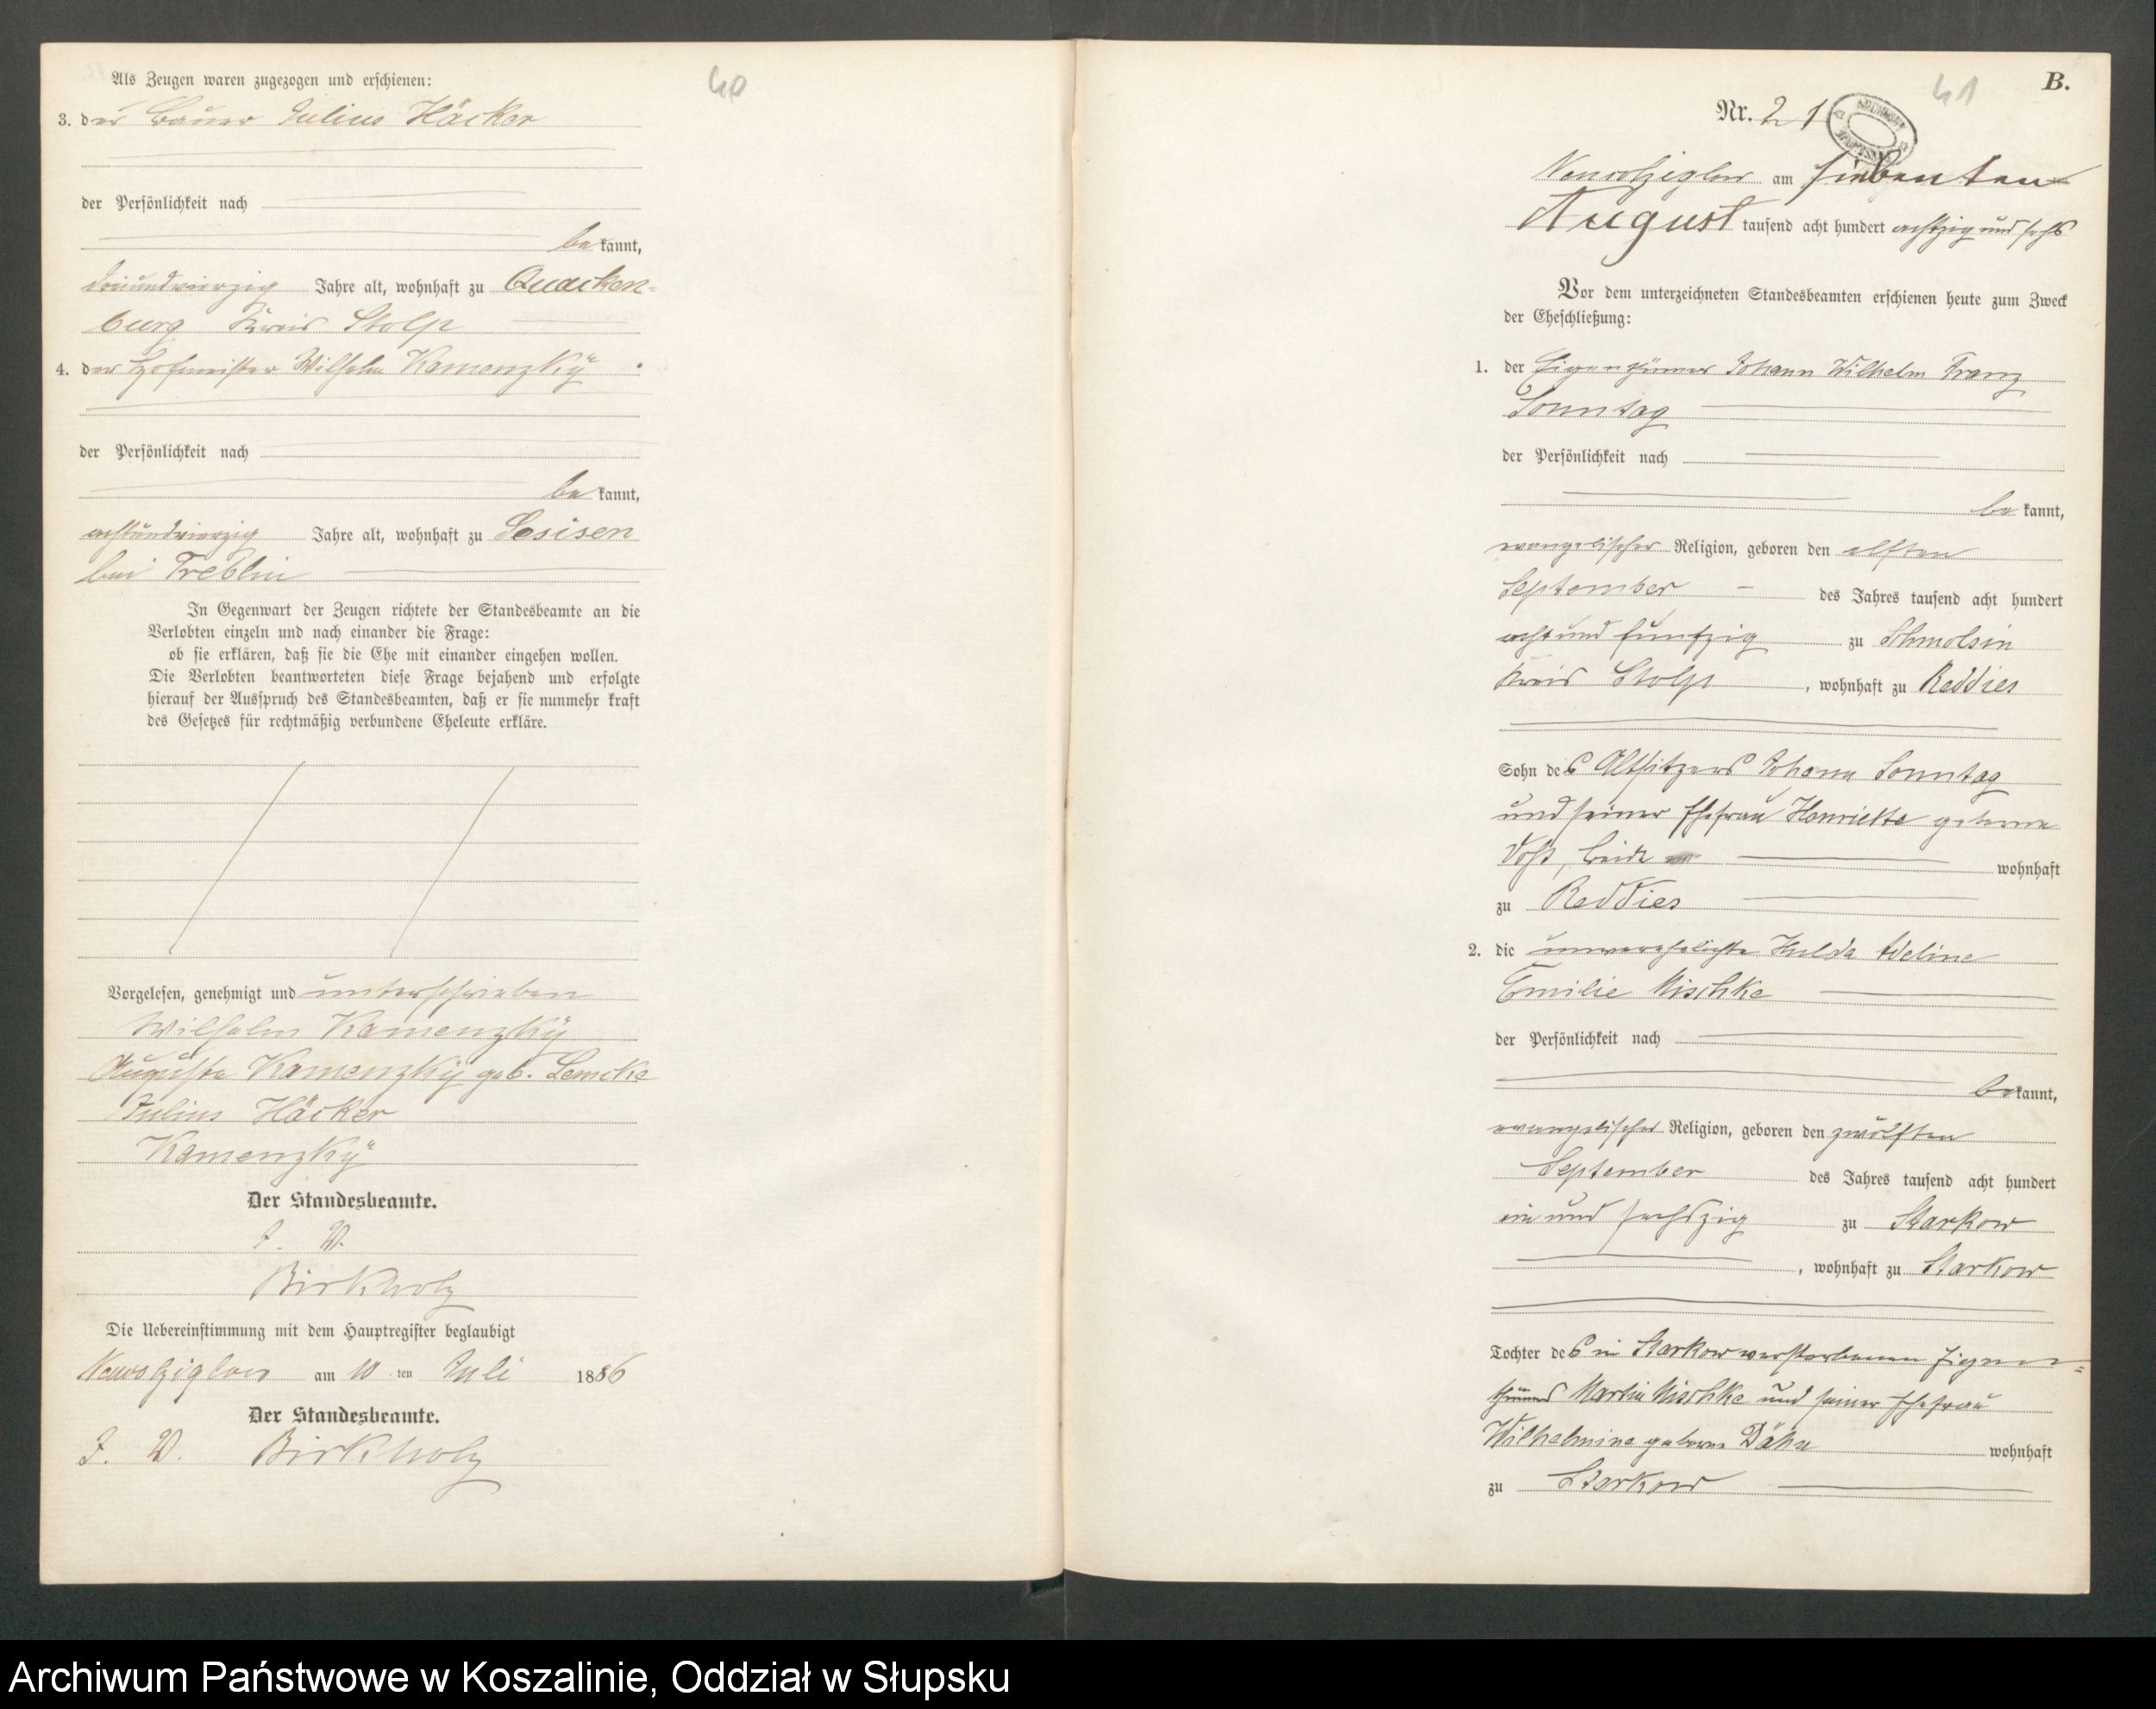 40
Als Zeugen waren zugezogen und erschienen:
3. der Bauer Julius Häcker
der Persönlichkeit nach
be kannt,
dreiundvierzig Jahre alt, wohnhaft zu Quacken-
burg Kreis Stolp
4. der Hofmeister Wilhelm Kamenzky
der Persönlichkeit nach
be kannt,
achtundvierzig Jahre alt, wohnhaft zu
bei Treblin
In Gegenwart der Zeugen richtete der Standesbeamte an die
Verlobten einzeln und nach einander die Frage:
ob sie erklären, daß sie die Ehe mit einander eingehen wollen.
Die Verlobten beantworteten diese Frage bejahend und erfolgte
hierauf der Ausspruch des Standesbeamten, daß er sie nunmehr kraft
des Gesetzes für rechtmäßig verbundene Eheleute erkläre.
Vorgelesen, genehmigt und unterschrieben
Wilhelm Kamenzky
Auguste Kamenzky geb. Lemcke
Julius Häcker
Kamenzky
Der Standesbeamte.
J. V.
Birkholz
Die Uebereinstimmung mit dem Hauptregister beglaubigt
am 10 ten Juli 1886
Der Standesbeamte.
J. V. Birkholz
41
B.
Nr. 21
am siebenten
August tausend acht hundert achtzig und sechs
Vor dem unterzeichneten Standesbeamten erschienen heute zum Zweck
der Eheschließung:
1. der Eigenthümer Johann Wilhelm Franz
Sonntag
der Persönlichkeit nach
be kannt,
evangelischer Religion, geboren den elften
September des Jahres tausend acht hundert
acht und fünfzig zu Schmolsin
Kreis Stolp, wohnhaft zu Reddies
Sohn des Altsitzers Johann Sonntag
und seiner Ehefrau Henriette geborene
Voß, beide wohnhaft
zu Reddies
2. die unverehelichte Hulda Adeline
Emilie Mischke
der Persönlichkeit nach
be kannt,
evangelischer Religion, geboren den zwölften
September des Jahres tausend acht hundert
ein und sechszig zu Starkow
, wohnhaft zu Starkow
Tochter des in Starkow verstorbenen Eigen-
thümers Martin Mischke und seiner Ehefrau
Wilhelmine geborne Dähn wohnhaft
zu Starkow
Archiwum Państwowe w Koszalinie, Oddział w Słupsku